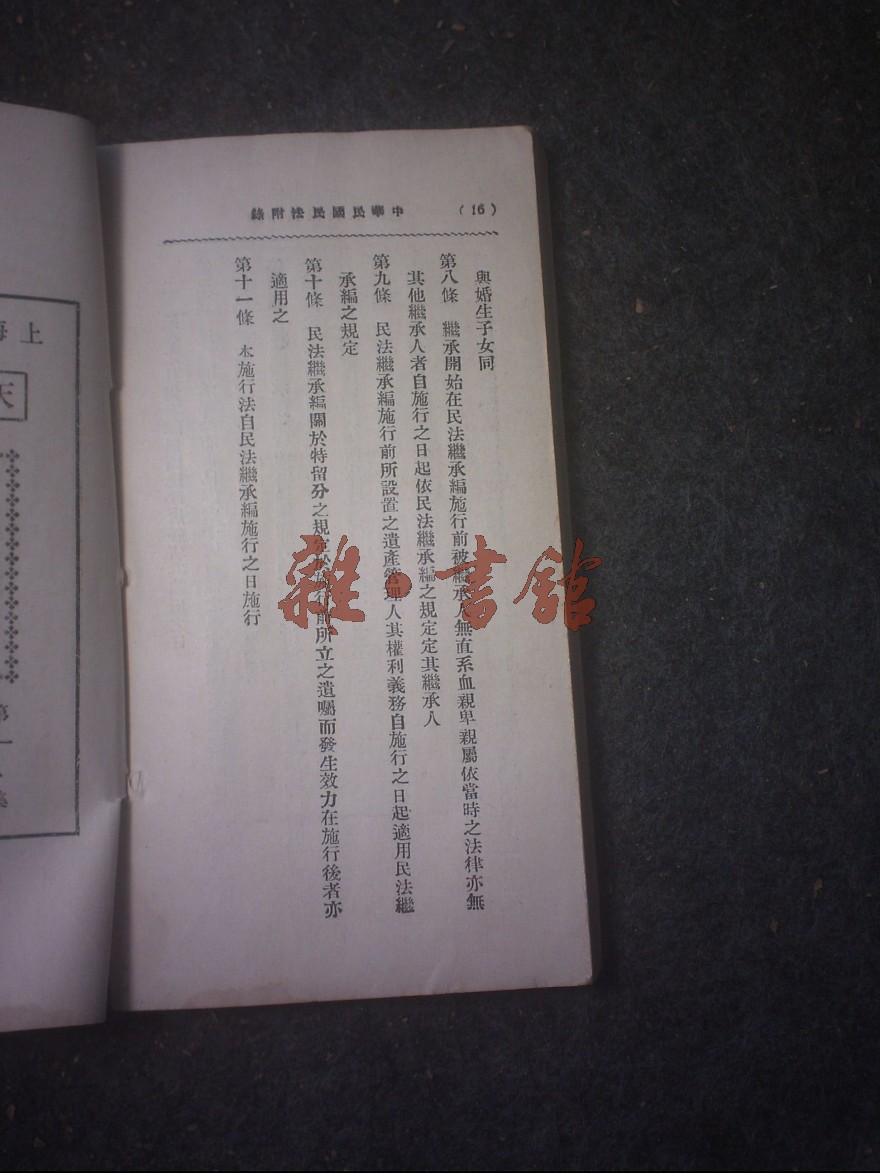 中華民國民法附錄
(16)
與婚生子女同
第八條　繼承開始在民法繼承編施行前被繼承人無直系血親卑親屬依當時之法律亦無
其他繼承人者自施行之日起依民法繼承編之規定定其繼承人
第九條　民法繼承編施行前所設置之遺產管理人其權利義務自施行之日起適用民法繼
承編之規定
第十條　民法繼承編關於特留分之規定於施行前所立之遺囑而發生效力在施行後者亦
適用之
第十一條　本施行法自民法繼承編施行之日施行
雜·書館
上海
天
第一
集